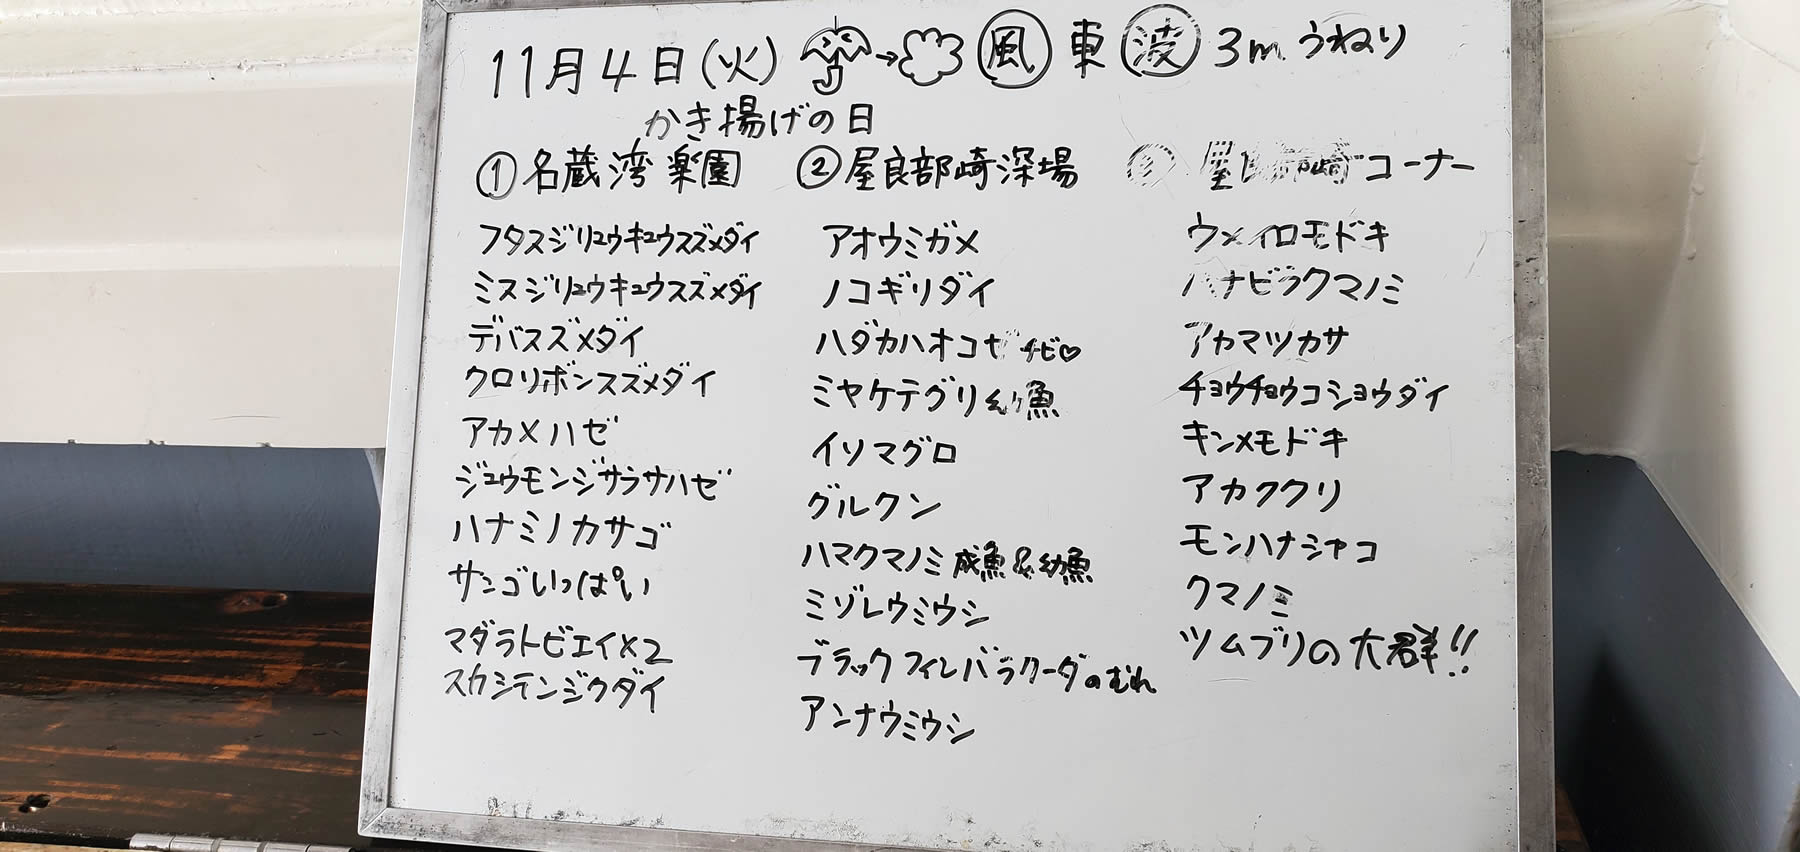 11月4日(火) → 風 東 波 3m うねり
かき揚げの日
①名蔵湾楽園
フタスジリュウキュウスズメダイ
ミスジリュウキュウスズメダイ
デバスズメダイ
クロリボンスズメダイ
アカメハゼ
ジュウモンジサラサハゼ
ハナミノカサゴ
サンゴいっぱい
マダラトビエイ×2
スカシテンジクダイ
②屋良部崎深場
アオウミガメ
ノコギリダイ
ハダカハオコゼ チビ♡
ミヤケテグリ幼魚
イソマグロ
グルクン
ハマクマノミ 成魚&幼魚
ミゾレウミウシ
ブラックフィンバラクーダのむれ
アンナウミウシ
③屋良部崎コーナー
ウメイロモドキ
ハナビラクマノミ
アカマツカサ
チョウチョウコショウダイ
キンメモドキ
アカククリ
モンハナシャコ
クマノミ
ツムブリの大群!!